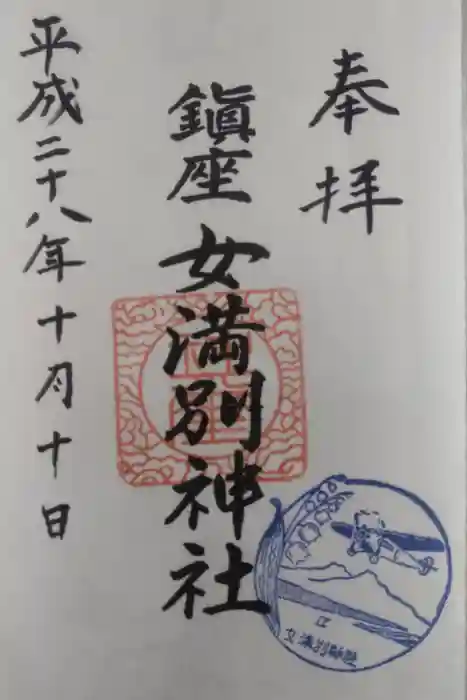 奉拝
鎮座 女満別神社
平成二十八年十月十日
女満別